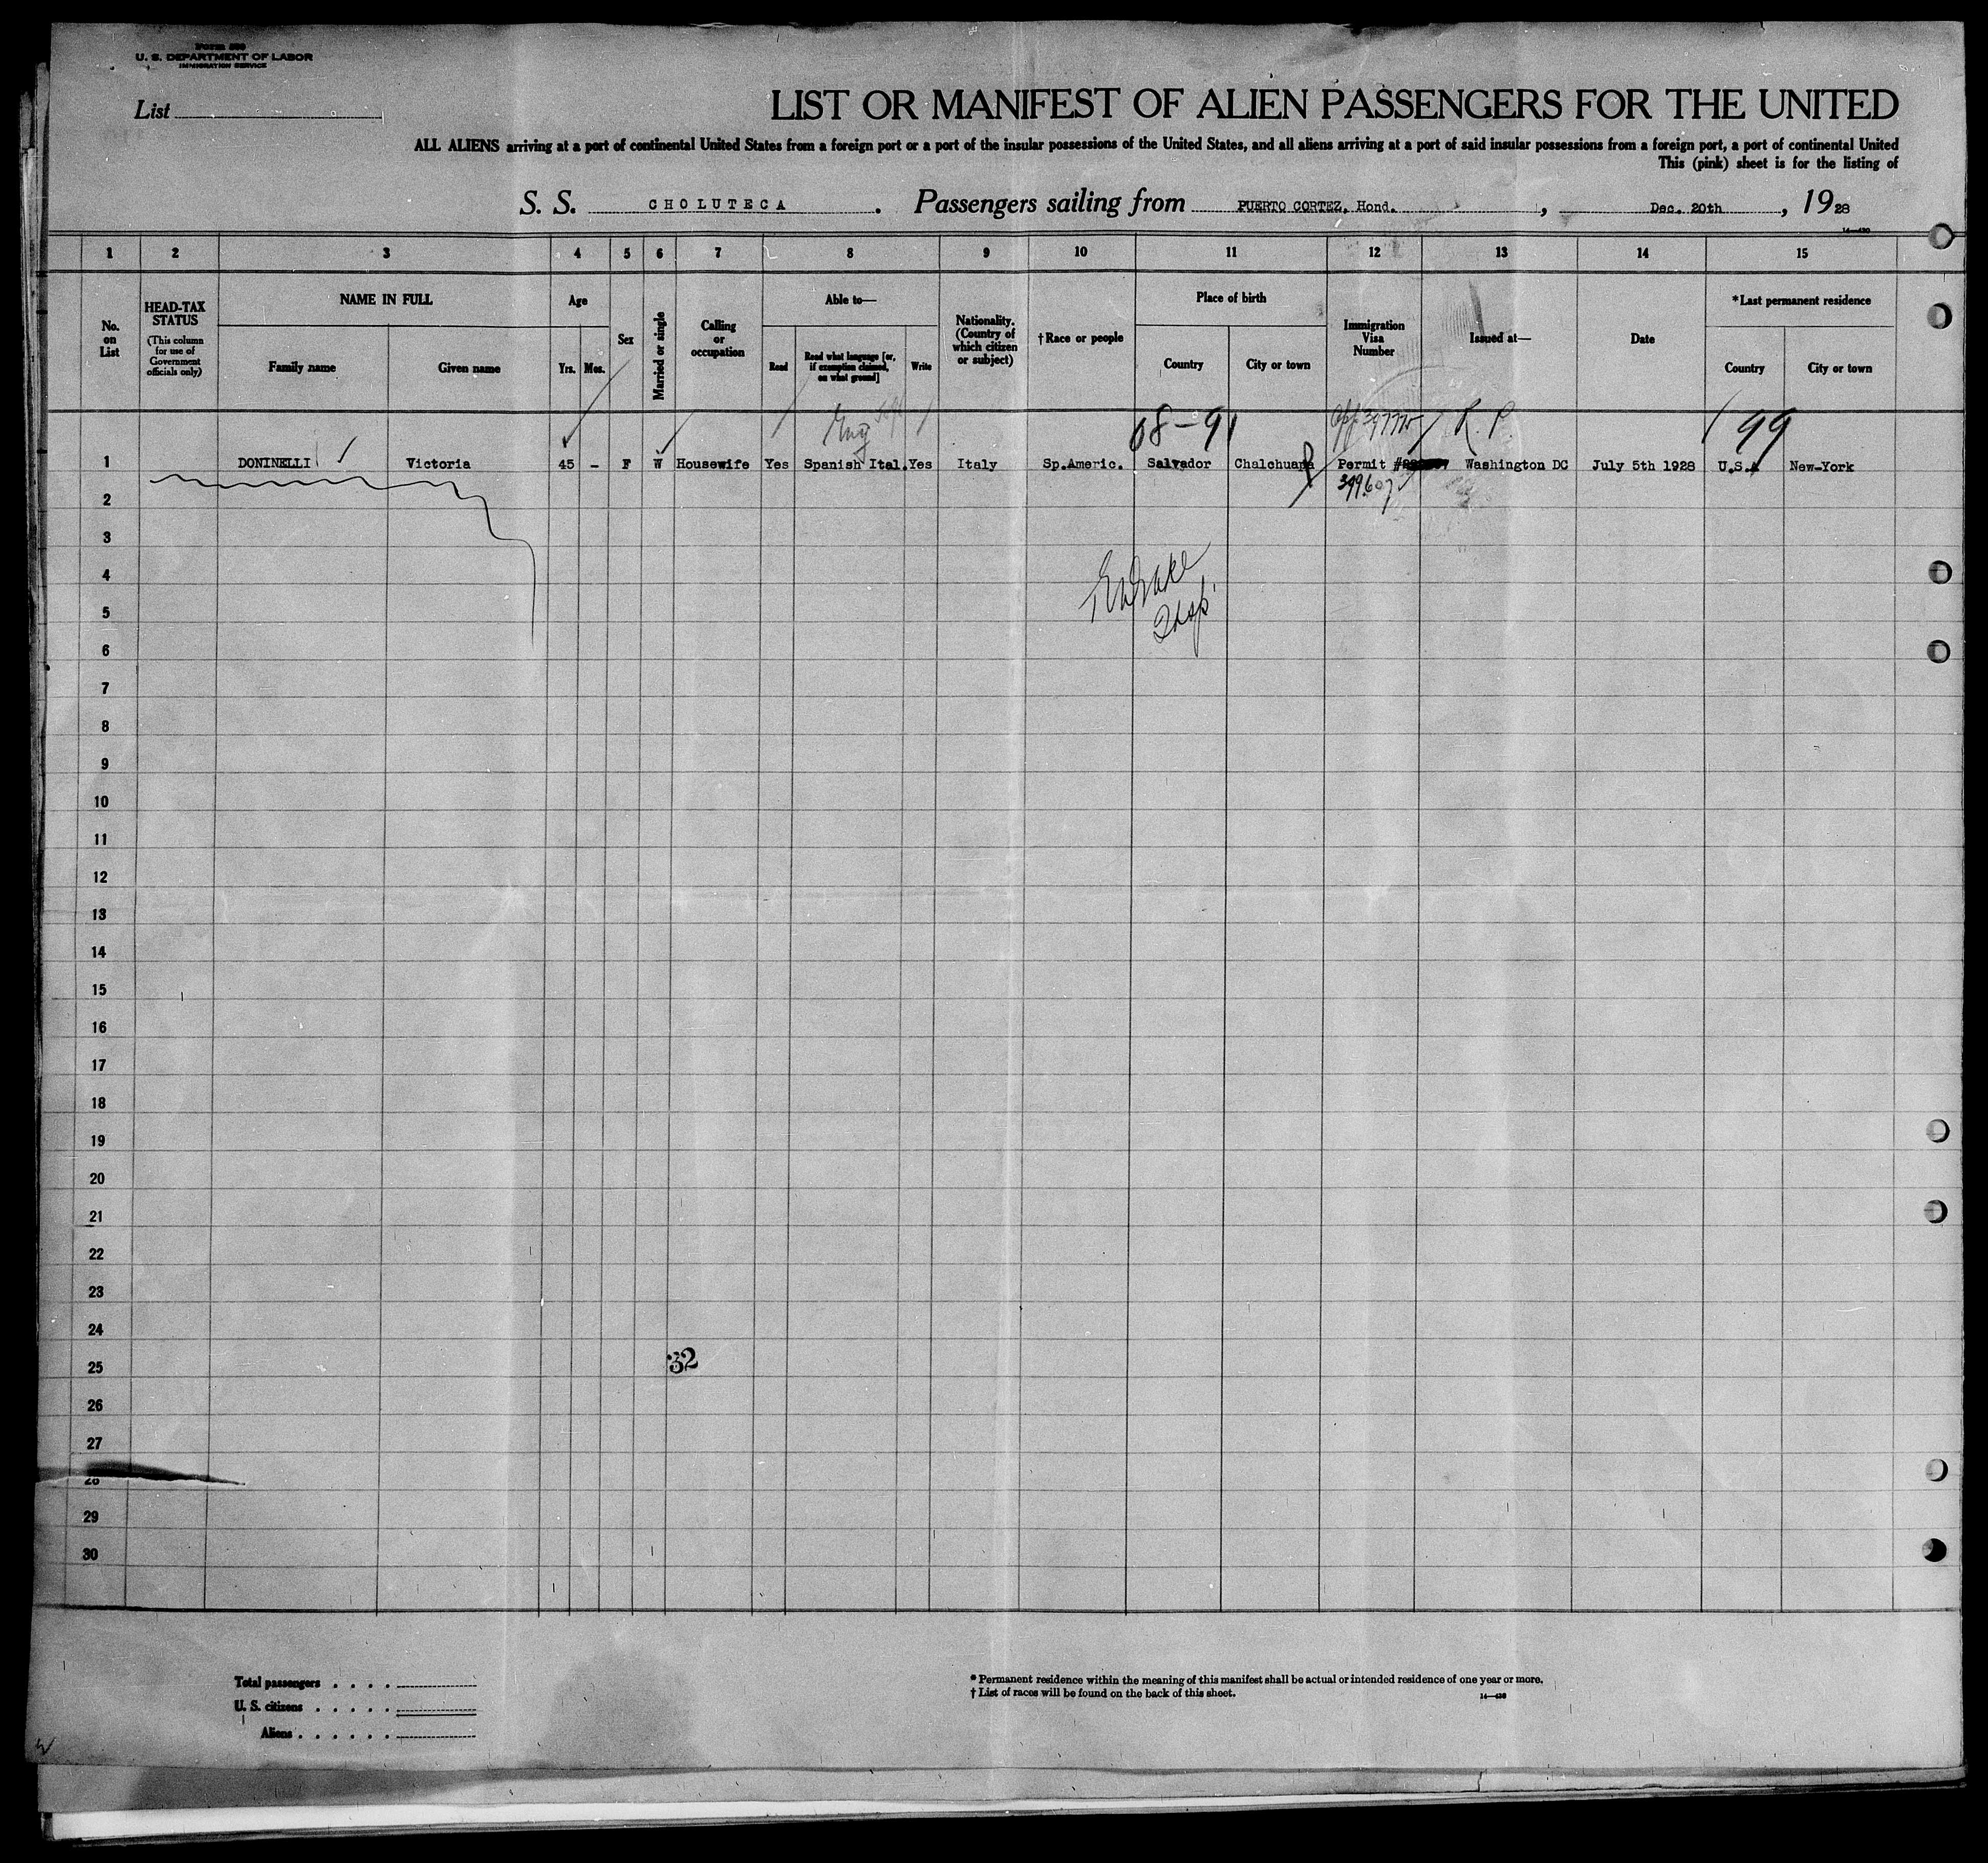 Form 500
U. S. DEPARTMENT OF LABOR
IMMIGRATION SERVICE
List
LIST OR MANIFEST OF ALIEN PASSENGERS FOR THE UNITED
ALL ALIENS arriving at a port of continental United States from a foreign port or a port of the insular possessions of the United States, and all aliens arriving at a port of said insular possessions from a foreign port, a port of continental United
This (pink) sheet is for the listing of
S. S. CHOLUTECA. Passengers sailing from PUERTO CORTEZ, Hond., Dec. 20th, 1928
1 2 3 4 5 6 7 8 9 10 11 12 13 14 15
No. on List
HEAD-TAX STATUS (This column for use of Government officials only)
NAME IN FULL
Family name Given name
Age
Yrs. Mos.
Sex
Married or single
Calling or occupation
Able to—
Read
Read what language [or, if exemption claimed, on what ground]
Write
Nationality. (Country of which citizen or subject)
†Race or people
Place of birth
Country City or town
Immigration Visa Number
Issued at—
Date
*Last permanent residence
Country City or town
68-91 R. P. 99
1 DONINELLI Victoria 45 - F W Housewife Yes Spanish Ital. Yes Italy Sp.Americ. Salvador Chalchuapa Permit # Washington DC July 5th 1928 U.S.A New-York
399607
2
3
4
5
6
7
8
9
10
11
12
13
14
15
16
17
18
19
20
21
22
23
24
32
25
26
27
28
29
30
Total passengers
U. S. citizens
Aliens
* Permanent residence within the meaning of this manifest shall be actual or intended residence of one year or more.
† List of races will be found on the back of this sheet.
14—430